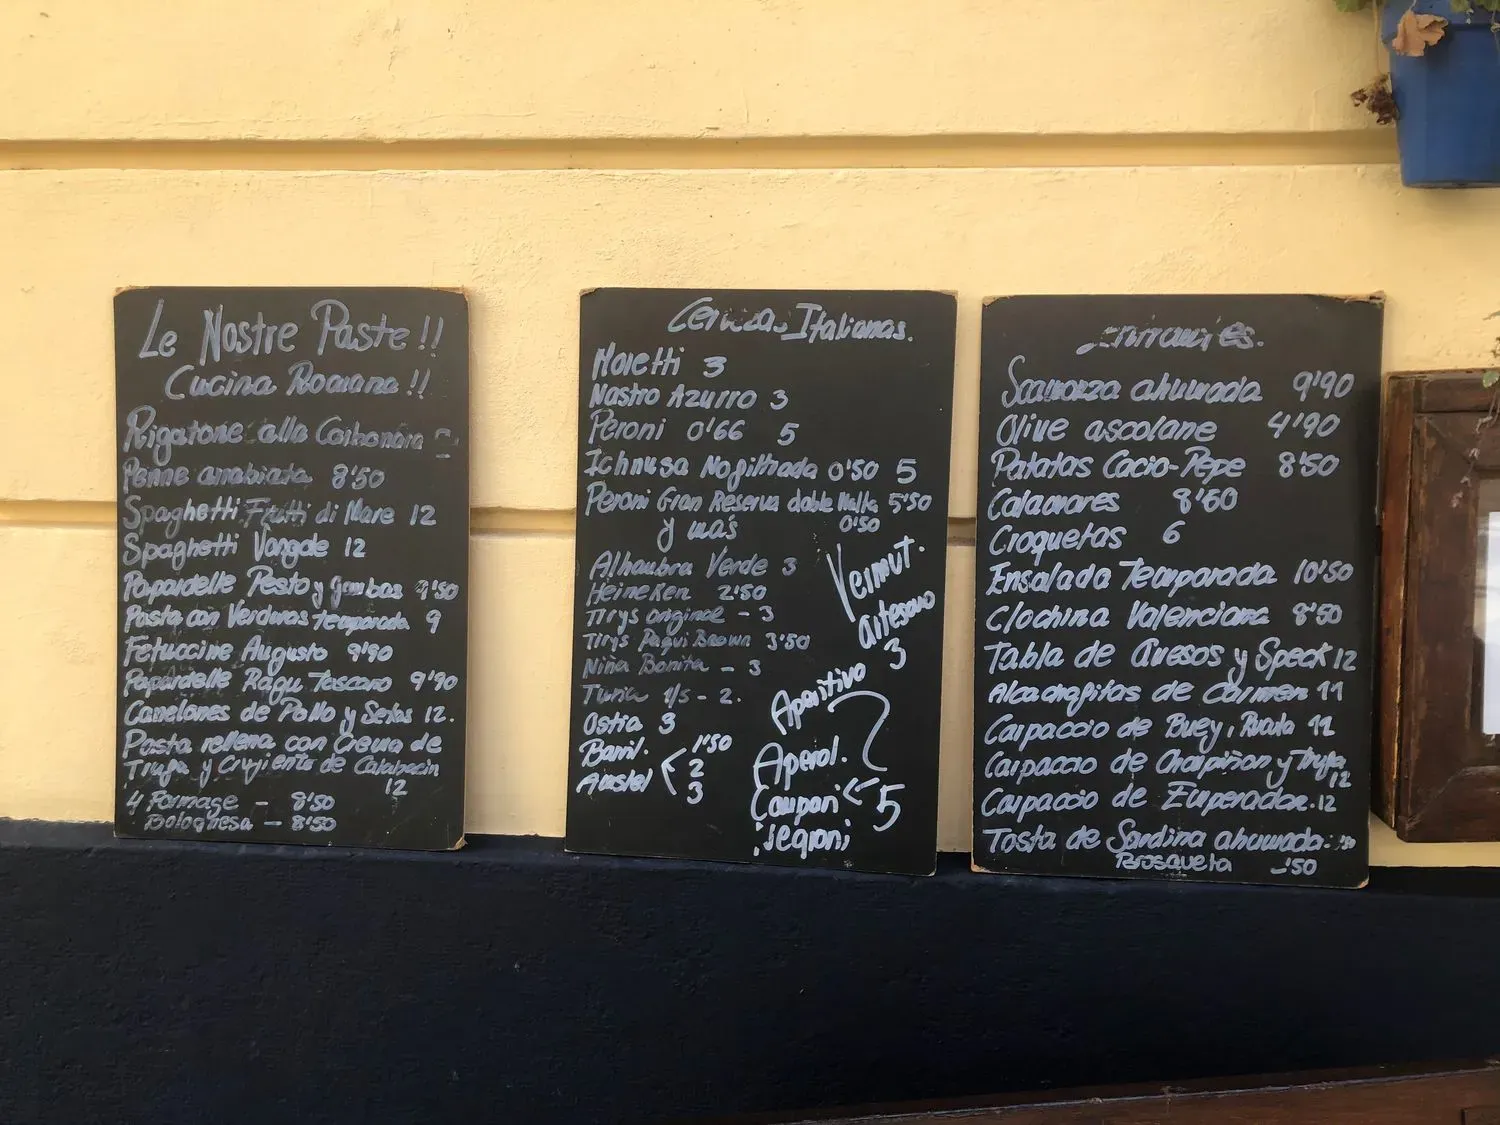 Le Nostre Paste!!
Cucina Romana!!
Rigatone alla Carbonara
Penne arrabiata 8'50
Spaghetti Frutti di Mare 12
Spaghetti Vongole 12
Papardelle Pesto y gambas 9'50
Pasta con Verduras temporada 9
Fetuccine Augusto 9'90
Papardelle Ragu Toscano 9'90
Canelones de Pollo y Setas 12.
Pasta rellena con Crema de
Trufa y Crujiente de Calabacin
12
4 Formage - 8'50
Bolognesa - 8'50
Cervezas Italianas.
Moretti 3
Nastro Azurro 3
Peroni 0'66 5
Ichnusa No filtrada 0'50 5
Peroni Gran Reserva doble Malta 5'50
y mas 0'50
Alhambra Verde 3
Heineken 2'50
Tirys original - 3
Tirys Paqui Brown 3'50
Nina Bonita - 3
Turia 1/5 - 2.
Ostra 3
Barril. 1'50
Amstel 2
3
Vermut.
artesano
3
Aperitivo
Aperol.
Campari 5
isegroni
Scamorza ahumada 9'90
Olive ascolane 4'90
Patatas Cacio-Pepe 8'50
Calamares 8'60
Croquetas 6
Ensalada Temporada 10'50
Clochina Valenciana 8'50
Tabla de Quesos y Speck 12
Alcachofitas de Carmen 11
Carpaccio de Buey, Rucula 12
Carpaccio de Champiñon y Trufa
12
Carpaccio de Emperador. 12
Tosta de Sardina ahumada
Brosqueta '50